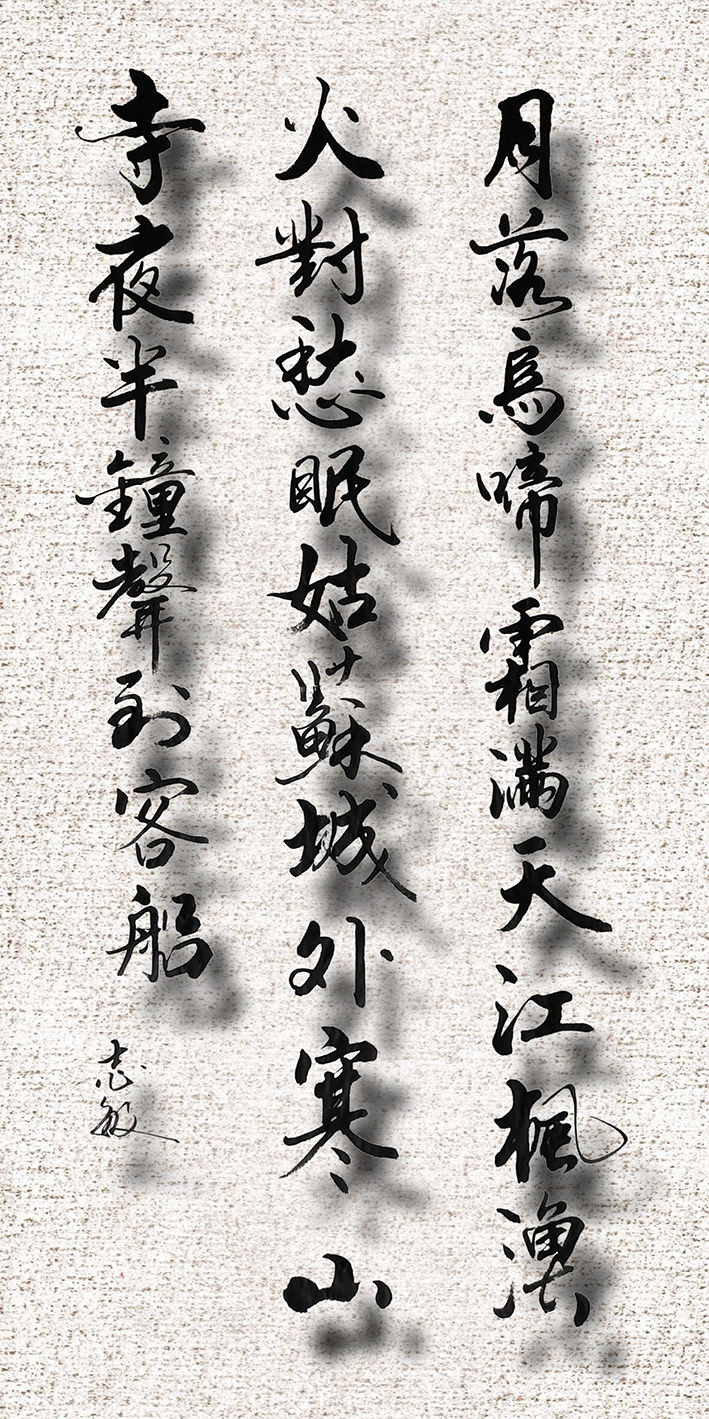 月落烏啼霜滿天江楓漁
火對愁眠姑蘇城外寒山
寺夜半鐘聲到客船
志敏